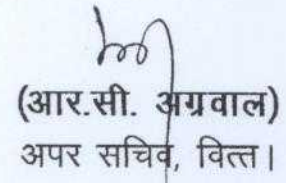 (आर.सी. अग्रवाल)
अपर सचिव, वित्त।